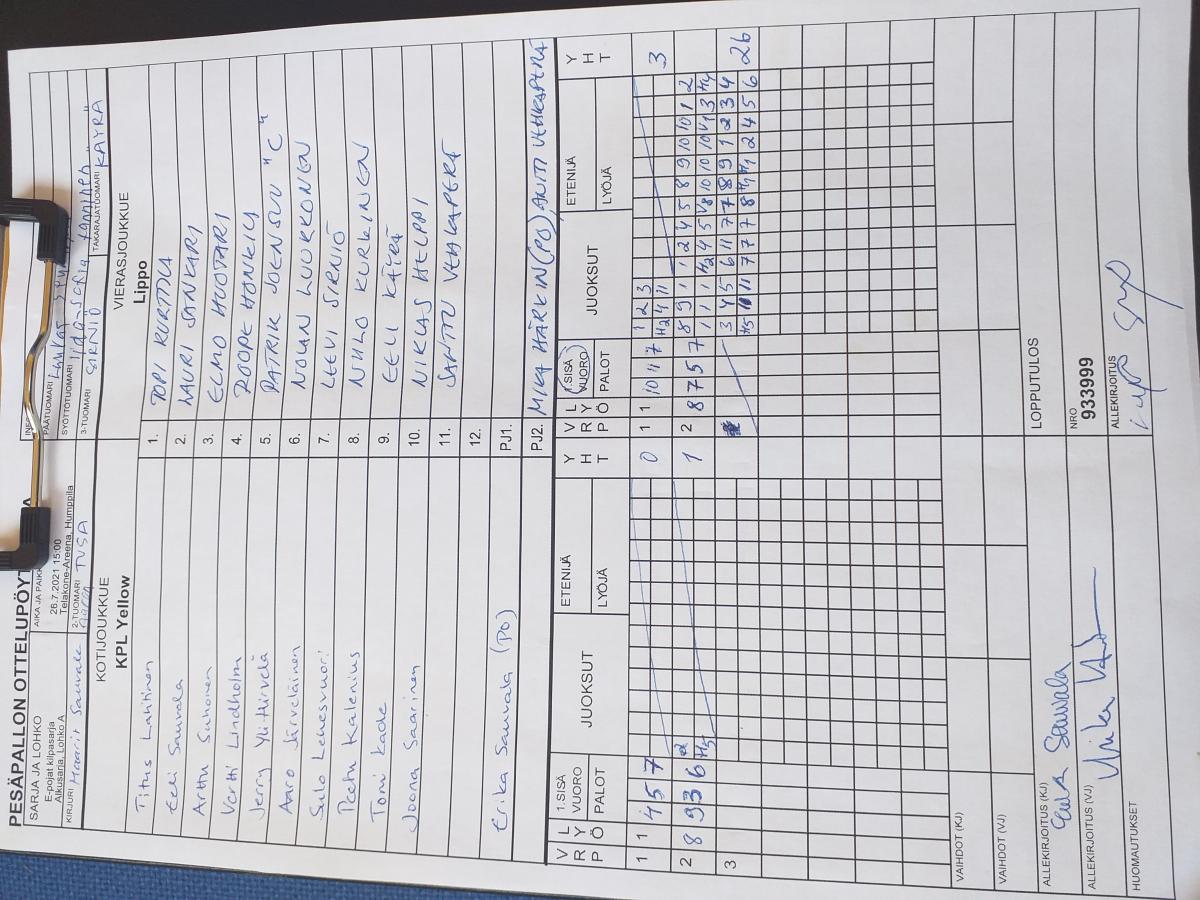 PESÄPALLON OTTELUPÖYT
SARJA JA LOHKO
E-pojat kilpasarja
Alkusarja, Lohko A
AIKA JA PAIKK
26.7.2021 15:00
Telakone-Areena, Humppila
PÄÄTUOMARI
SYÖTTÖTUOMARI
KIRJURI Maarit Sauvala
2-TUOMARI TUSA
3-TUOMARI SIRNIÖ
TAKARAJATUOMARI KÄYRÄ
KOTIJOUKKUE
KPL Yellow
VIERASJOUKKUE
Lippo
Titus Lahtinen 1. TOPI KURTTILA
Eeli Sauvala 2. LAURI SANKARI
Arttu Suhonen 3. ELMO HUOTARI
Vertti Lindholm 4. ROOPE HONKELA
Jerry Yli-Hirvelä 5. PATRIK JOENSUU "C"
Aaro Järveläinen 6. NOLAN LUUKKONEN
Sulo Lehesvuori 7. LEEVI SIRNIÖ
Peetu Kalenius 8. NUILO KURKINEN
Tomi Kade 9. EELI KÄYRÄ
Joona Saarinen 10. NIKLAS HELPPI
11. SANTTU VEHKAPERÄ
12.
Erika Sauvala (PO) PJ1.
PJ2. MIKA HÄRKIN (PO), ANTTI VEHKAPERÄ
V R P L Y Ö 1.SISÄ VUORO PALOT JUOKSUT ETENIJÄ LYÖJÄ Y H T
V R P L Y Ö 1.SISÄ VUORO PALOT JUOKSUT ETENIJÄ LYÖJÄ Y H T
1 1 4 5 7 0
1 1 10 11 7 1 2 3 3
H2 4 11
2 8 9 3 6 2 1
H3
2 8 7 5 7 8 9 1 1 2 4 5 8 9 10 10 1 2
3
3 4 5 6 11 7 7 8 9 1 2 3 4 26
H5 11 11 7 7 7 8 H1 H1 2 4 5 6
VAIHDOT (KJ)
VAIHDOT (VJ)
LOPPUTULOS
ALLEKIRJOITUS (KJ) Eeli Sauvala
NRO
933999
ALLEKIRJOITUS (VJ)
ALLEKIRJOITUS
HUOMAUTUKSET